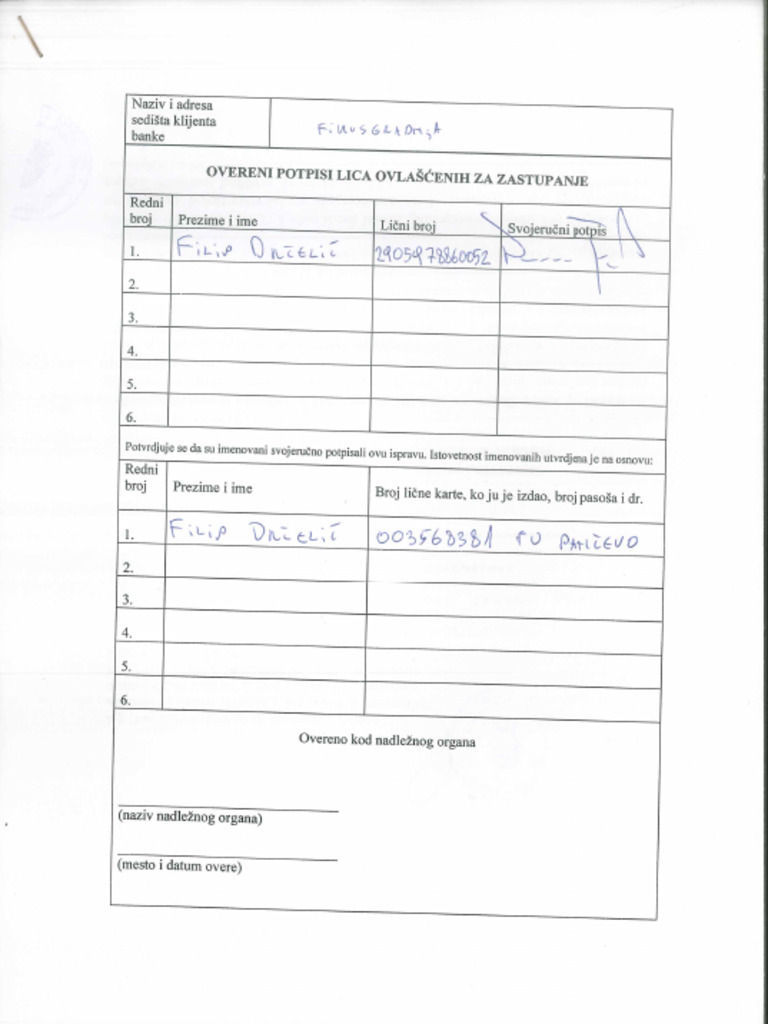 Naziv i adresa
sedišta klijenta
banke
OVERENI POTPISI LICA OVLAŠĆENIH ZA ZASTUPANJE
Redni
broj
Prezime i ime
Lični broj
Svojeručni potpis
1. Filip 2905978860052
2.
3.
4.
5.
6.
Potvrdjuje se da su imenovani svojeručno potpisali ovu ispravu. Istovetnost imenovanih utvrdjena je na osnovu:
Redni
broj
Prezime i ime
Broj lične karte, ko ju je izdao, broj pasoša i dr.
1. Filip 003568381 PU PANČEVO
2.
3.
4.
5.
6.
Overeno kod nadležnog organa
(naziv nadležnog organa)
(mesto i datum overe)